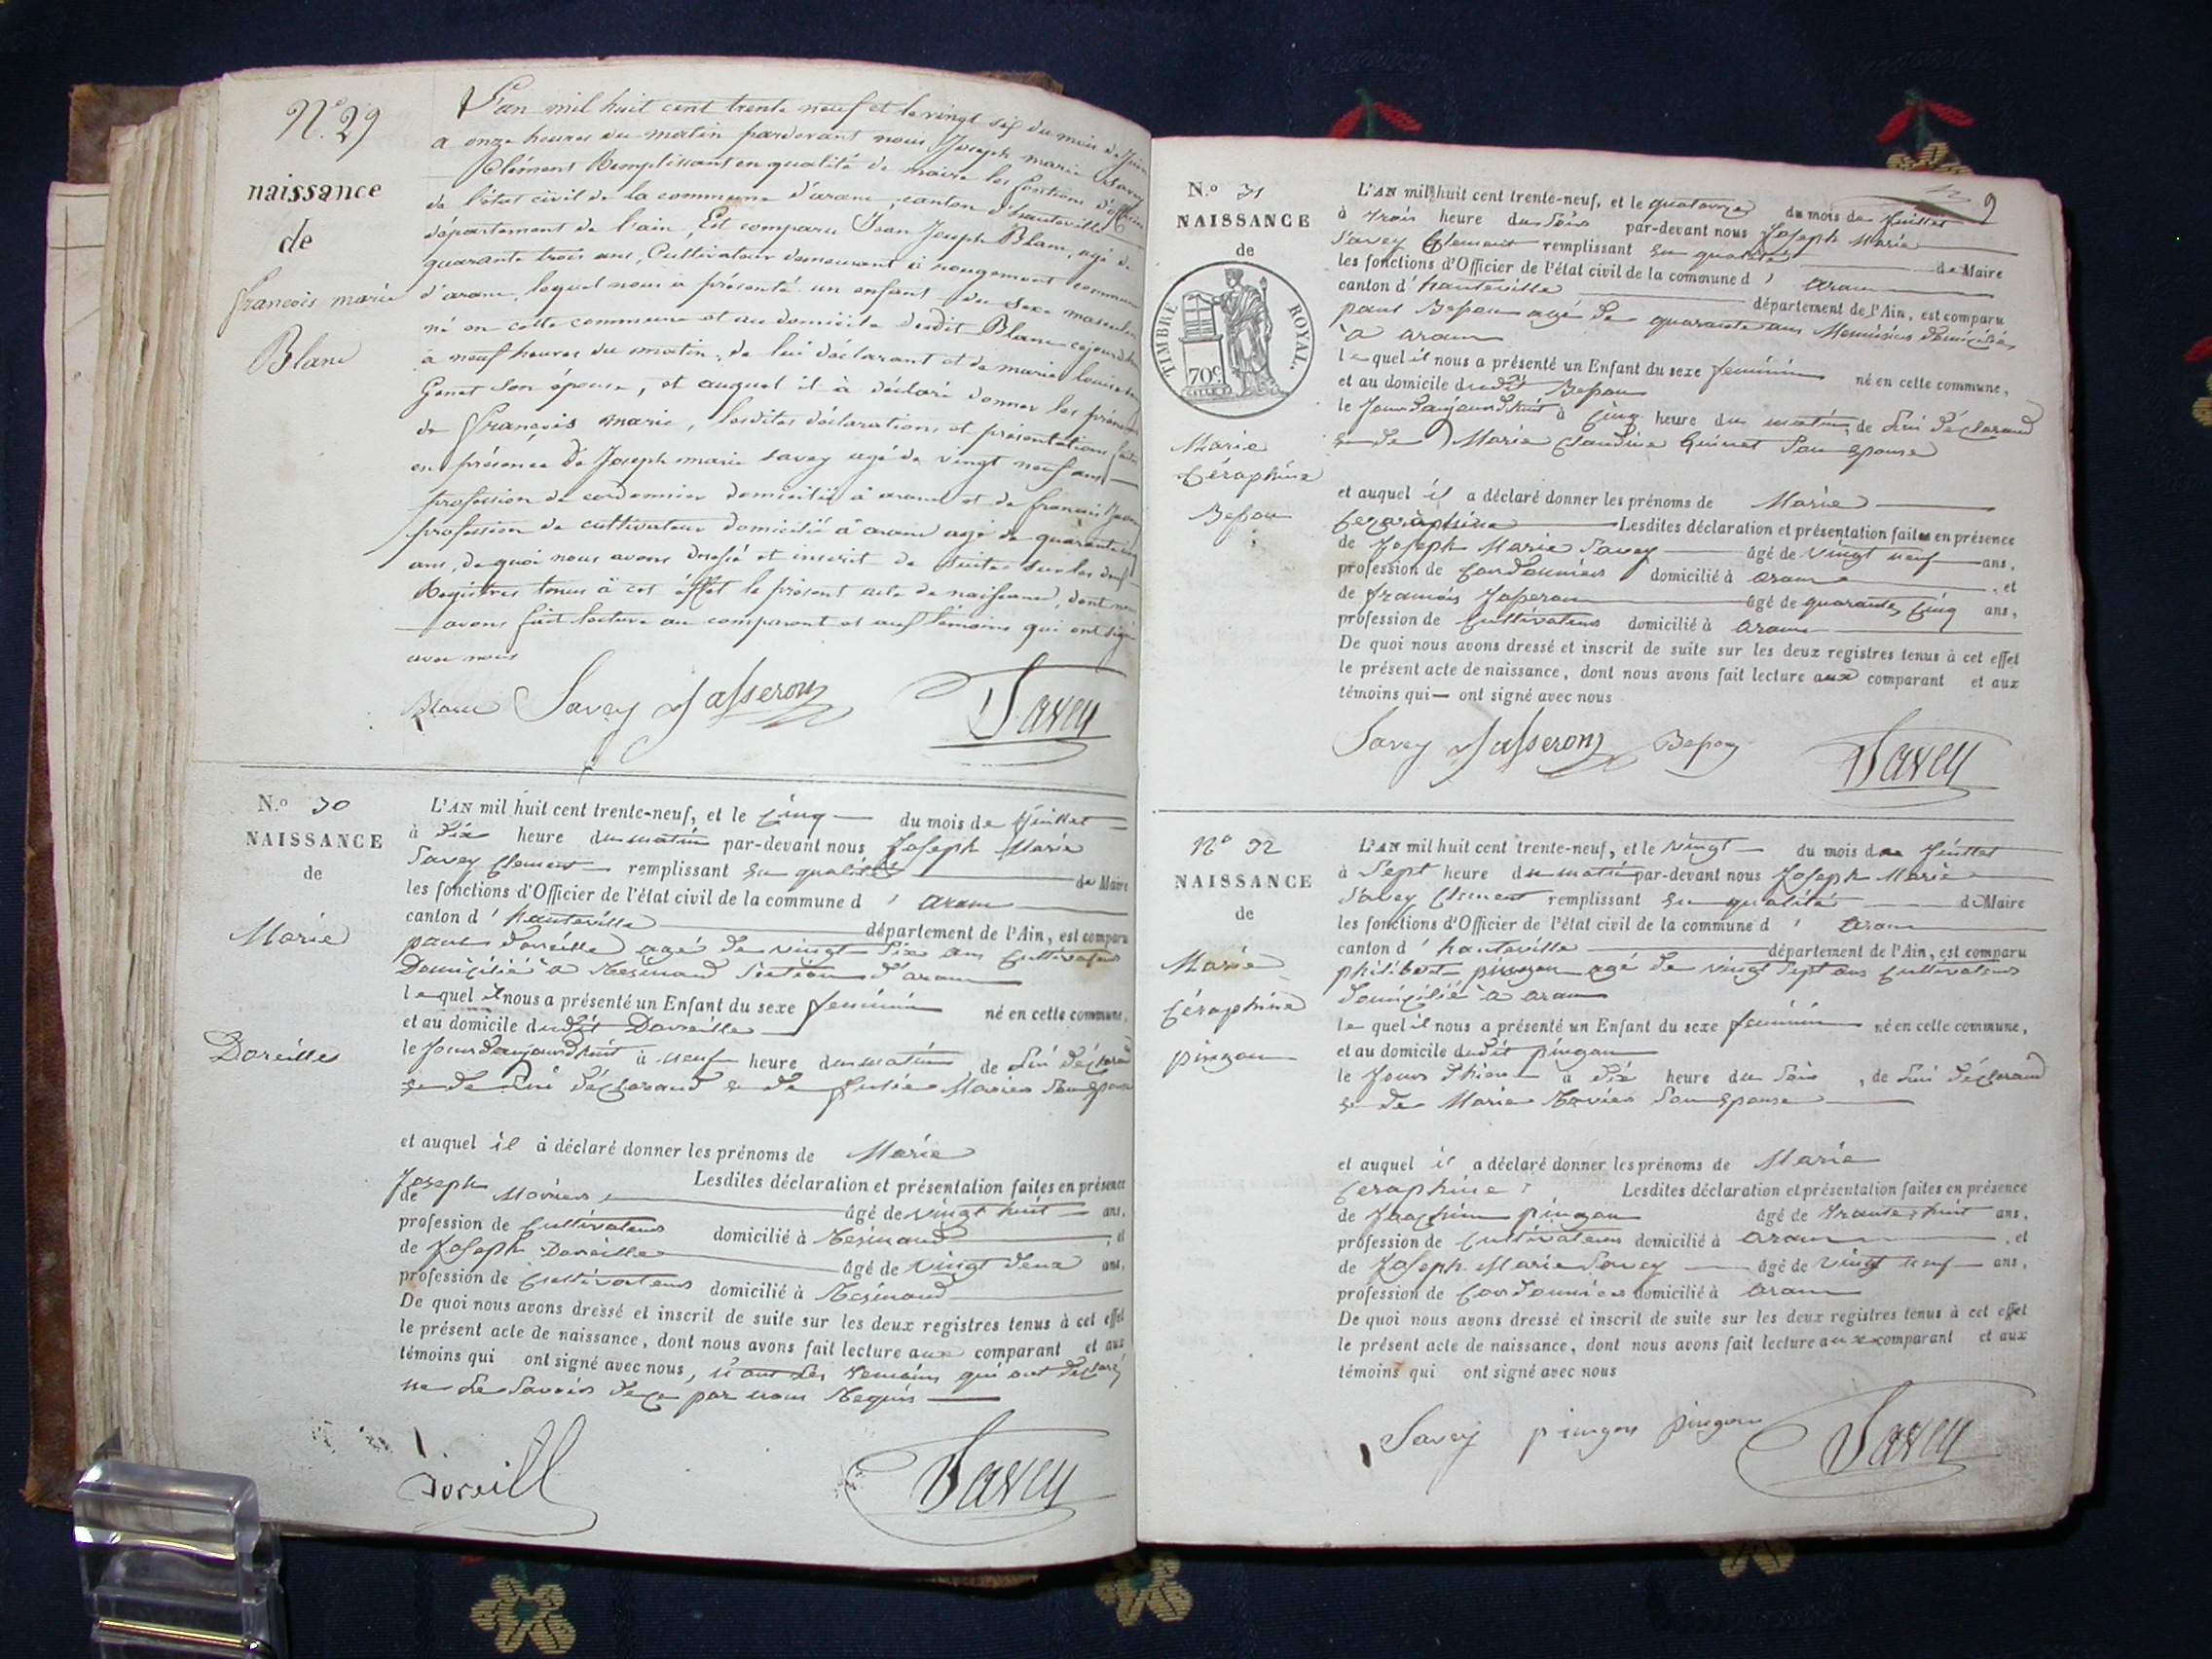 N.º 29
naissance
de
françois marie
Blanc
L'an mil huit cent trente neuf et le vingt six du mois de Juin
a onze heures du matin pardevant nous Joseph marie Savey
Clément Remplissant en qualité de maire les fonctions d'officier
de l'état civil de la commune d'aranc, canton d'hauteville
département de l'ain, Est comparu Jean Joseph Blanc, agé de
quarante trois ans, Cultivateur demeurant à rougemont commune
d'aranc, lequel nous à présenté un enfant du sexe masculin
né en cette commune et au domicile dudit Blanc cejourd'hui
à neuf heures du matin, de lui déclarant et de marie louise
Genet son épouse, et auquel il à déclaré donner les prénoms
de françois marie, lesdites déclarations et présentations faites
en présence de Joseph marie savey agé de vingt neuf ans
profession de cordonnier domicilié à aranc et de francois
profession de cultivateur domicilié à aranc agé de quarante cinq
ans, de quoi nous avons dressé et inscrit de suite sur les deux
Registres tenus à cet éffet le présent acte de naissance, dont nous
avons fait lecture au comparant et aux témoins qui ont signé
avec nous
Blanc Savey Jasseron Savey
N.º 30
NAISSANCE
de
Marie
Doreille
L'AN mil huit cent trente-neuf, et le Cinq du mois de Juillet
à Dix heure du matin par-devant nous Joseph Marie
Savey Clement remplissant En qualité de Maire
les fonctions d'Officier de l'état civil de la commune d' aranc
canton d' hauteville département de l'Ain, est comparu
paul Doreille agé de vingt Six ans Cultivateur
Domicilié a Résinand Section d'aranc
lequel il nous a présenté un Enfant du sexe feminin né en cette commune,
et au domicile dudit Doreille
le Jour Daujourdhuit à neuf heure du matin, de Lui Déclarand
& de Lui Déclarand & de Julie Marier Son Epouse
et auquel il à déclaré donner les prénoms de Marie
Lesdites déclaration et présentation faites en présence
de Joseph Marier âgé de vingt huit ans,
profession de Cultivateur domicilié à Résinand, et
de Joseph Doreille âgé de vingt deux ans,
profession de Cultivateur domicilié à Résinand
De quoi nous avons dressé et inscrit de suite sur les deux registres tenus à cet effet
le présent acte de naissance, dont nous avons fait lecture aux comparant et aux
témoins qui ont signé avec nous, les temoins qui ont Declaré
ne Le Savoir par nous Requis
Doreill Savey
9
N.º 31
NAISSANCE
de
TIMBRE ROYAL.
70c
Marie
Céraphine
Bepou
L'AN mil huit cent trente-neuf, et le quatorze du mois de Juillet
à trois heure du Soir par-devant nous Joseph Marie
Savey Clement remplissant En qualité de Maire
les fonctions d'Officier de l'état civil de la commune d' aranc
canton d' hauteville département de l'Ain, est comparu
paul Bepou agé de quarante ans Menuisier Domicilié
à aranc
lequel il nous a présenté un Enfant du sexe feminin né en cette commune,
et au domicile dudit Bepou
le Jour Daujourdhuit à Cinq heure du matin, de Lui Déclarand
& de Marie Claudine Guinet Son Epouse
et auquel il a déclaré donner les prénoms de Marie
Ceraphine Lesdites déclaration et présentation faites en présence
de Joseph Marie Savey âgé de vingt neuf ans,
profession de Cordonnier domicilié à aranc, et
de francois Jasseron âgé de quarante Cinq ans,
profession de Cultivateur domicilié à aranc
De quoi nous avons dressé et inscrit de suite sur les deux registres tenus à cet effet
le présent acte de naissance, dont nous avons fait lecture aux comparant et aux
témoins qui — ont signé avec nous
Savey Jasseron Bepou Savey
Nº 32
NAISSANCE
de
Marie
Céraphine
pingon
L'AN mil huit cent trente-neuf, et le vingt du mois de Juillet
à Sept heure du matin par-devant nous Joseph Marie
Savey Clement remplissant En qualité de Maire
les fonctions d'Officier de l'état civil de la commune d' aranc
canton d' hauteville département de l'Ain, est comparu
philibert pingon agé de vingt Sept ans Cultivateur
Domicilié à aranc
lequel il nous a présenté un Enfant du sexe feminin né en cette commune,
et au domicile dudit pingon
le Jour Dhier à Dix heure du Soir, de Lui Déclarand
& de Marie Ravier Son Epouse
et auquel il a déclaré donner les prénoms de Marie
Ceraphine Lesdites déclaration et présentation faites en présence
de Joachim pingon âgé de trante huit ans,
profession de Cultivateur domicilié à aranc, et
de Joseph Marie Savey âgé de vingt neuf ans,
profession de Cordonnier domicilié à aranc
De quoi nous avons dressé et inscrit de suite sur les deux registres tenus à cet effet
le présent acte de naissance, dont nous avons fait lecture aux comparant et aux
témoins qui ont signé avec nous
Savey pingon pingon Savey